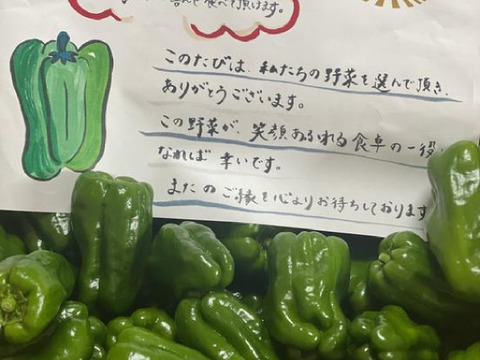 喜んで食べて頂けます。
このたびは、私たちの野菜を選んで頂き、
ありがとうございます。
この野菜が、笑顔あふれる食卓の一役
なれば 幸いです。
またのご縁を心よりお待ちしております